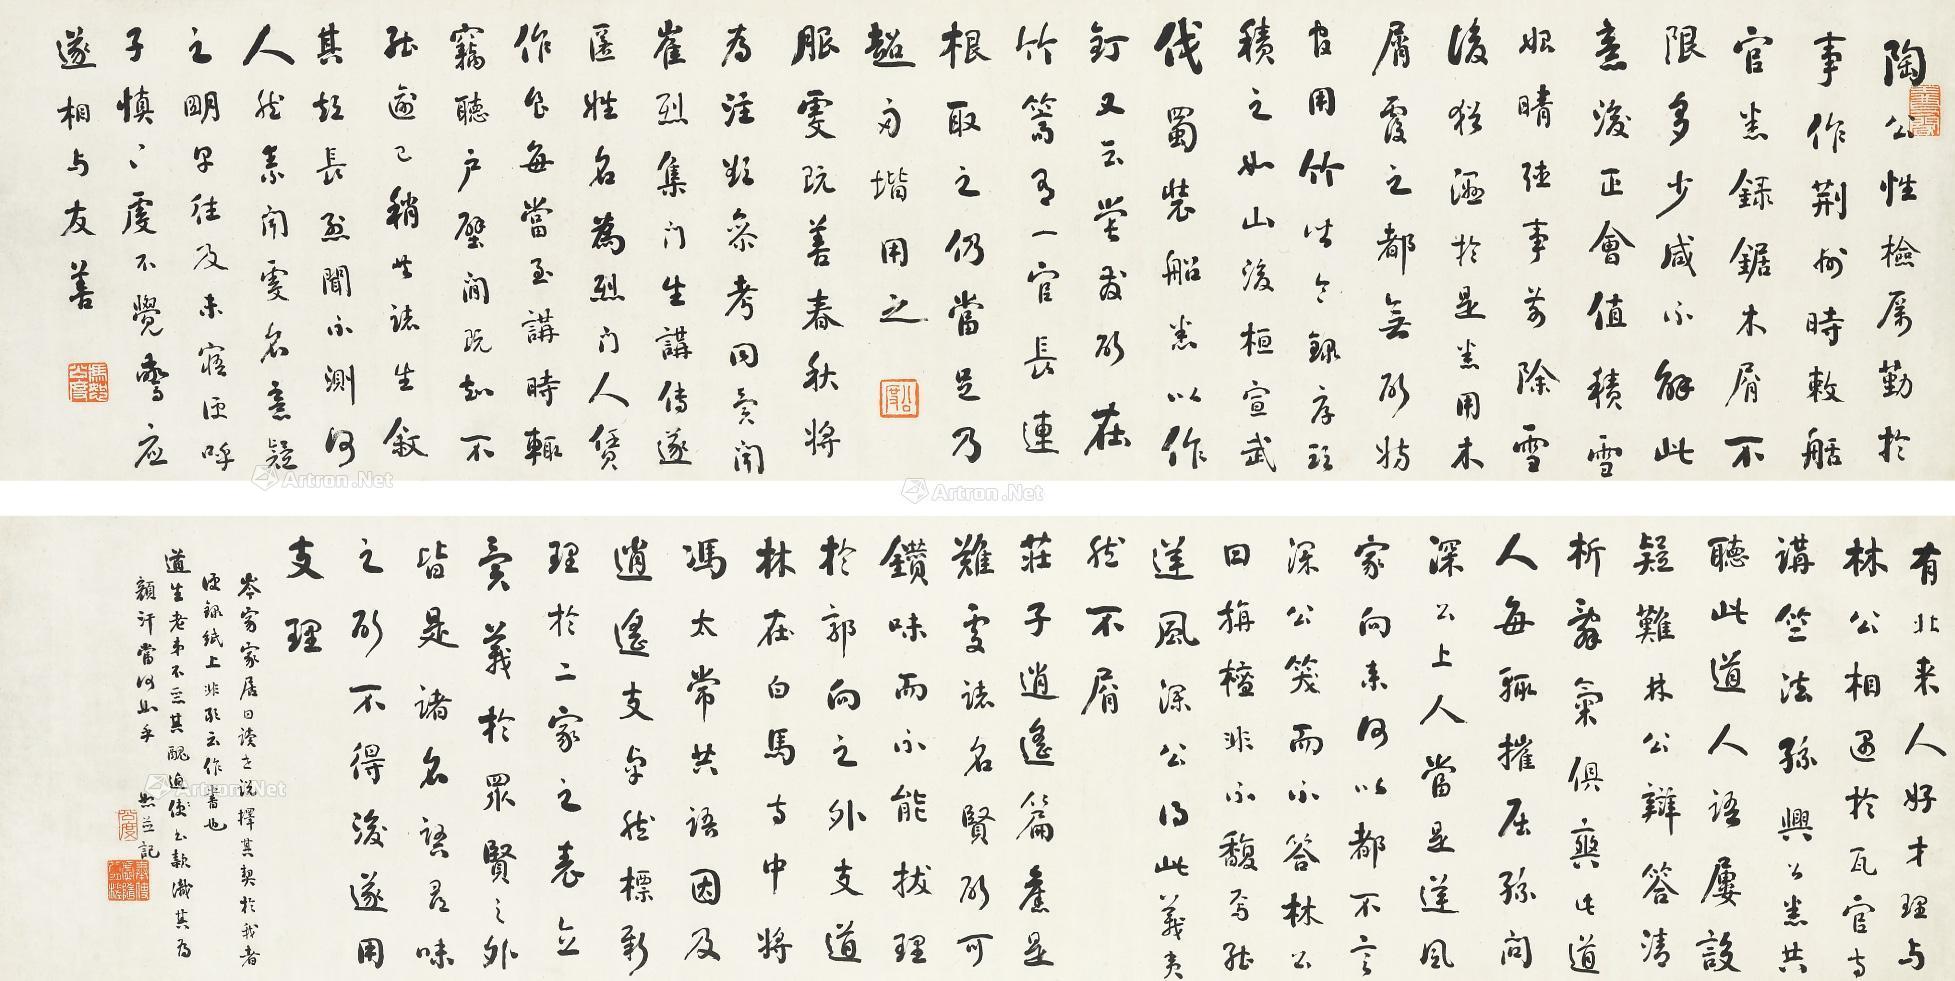 陶公性檢厲勤於
事作荊州時敕船
官悉錄鋸木屑不
限多少咸不解此
意後正會值積雪
始晴聽事前除雪
後猶濕於是悉用木
屑覆之都無所妨
官用竹皆令錄厚頭
積之如山後桓宣武
伐蜀裝船悉以作
釘又云嘗發所在
竹篙有一官長連
根取之仍當足乃
超兩階用之
服虔既善春秋將
為注欲參考同異聞
崔烈集門生講傳遂
匿姓名為烈門人賃
作食每當至講時輒
竊聽戶壁間既知不
能逾己稍共諸生敘
其短長烈聞不測何
人然素聞虔名意疑
之明早往及未寤便呼
子慎子慎虔不覺驚應
遂相与友善
有北来人好才理与
林公相遇於瓦官寺
講竺法孫興公悉共
聽此道人語屢設
疑難林公辯答清
析辭氣俱爽此道
人每輒摧屈孫問
深公上人當是逆風
家向来何以都不言
深公笑而不答林公
曰旃檀非不馥焉能
逆風深公得此義夷
然不屑
莊子逍遙篇舊是
難處諸名賢所可
鑽味而不能拔理
於郭向之外支道
林在白馬寺中將
馮太常共語因及
逍遙支卓然標新
理於二家之表立
異義於眾賢之外
皆是諸名賢尋味
之所不得後遂用
支理
岑寂家居日读世说擇其契於我者
便錄紙上非敢云作書也
道生老弟不惡其醜迫使公款識其為
顏汗當何如乎 恕並記
Artron.Net
Artron.Net
Artron.Net